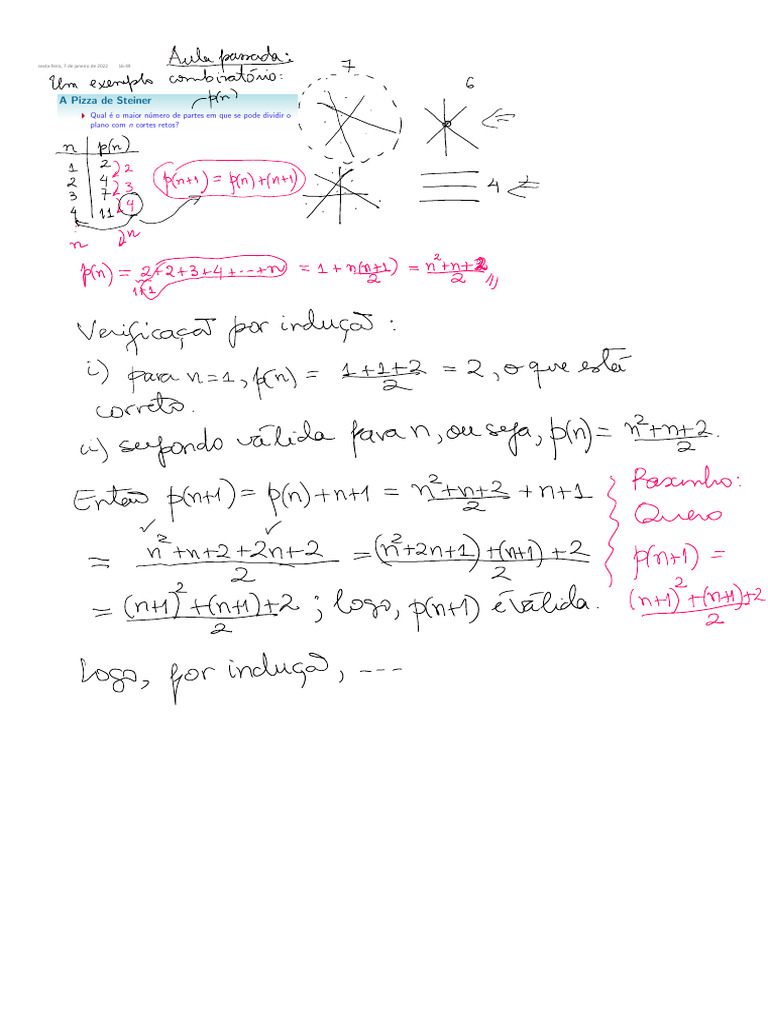 sexta-feira, 7 de janeiro de 2022 16:48
Aula passada:
Um exemplo combinatório:
p(n)
7
6
A Pizza de Steiner
Qual é o maior número de partes em que se pode dividir o
plano com n cortes retos?
n p(n)
1 2
2 4
3 7
4 11
2
3
4
n
n
p(n+1) = p(n)+(n+1)
4
p(n) = 2+2+3+4+...+n = 1 + n(n+1)/2 = (n²+n+2)/2 //
1+1
Verificação por indução:
i) para n=1, p(n) = (1+1+2)/2 = 2, o que está
correto.
ii) supondo válida para n, ou seja, p(n) = (n²+n+2)/2.
Então p(n+1) = p(n)+n+1 = (n²+n+2)/2 + n+1
= (n²+n+2+2n+2)/2 = ((n²+2n+1)+(n+1)+2)/2
= ((n+1)²+(n+1)+2)/2 ; logo, p(n+1) é válida.
Logo, por indução, ----
Quero
p(n+1) =
((n+1)²+(n+1)+2)/2